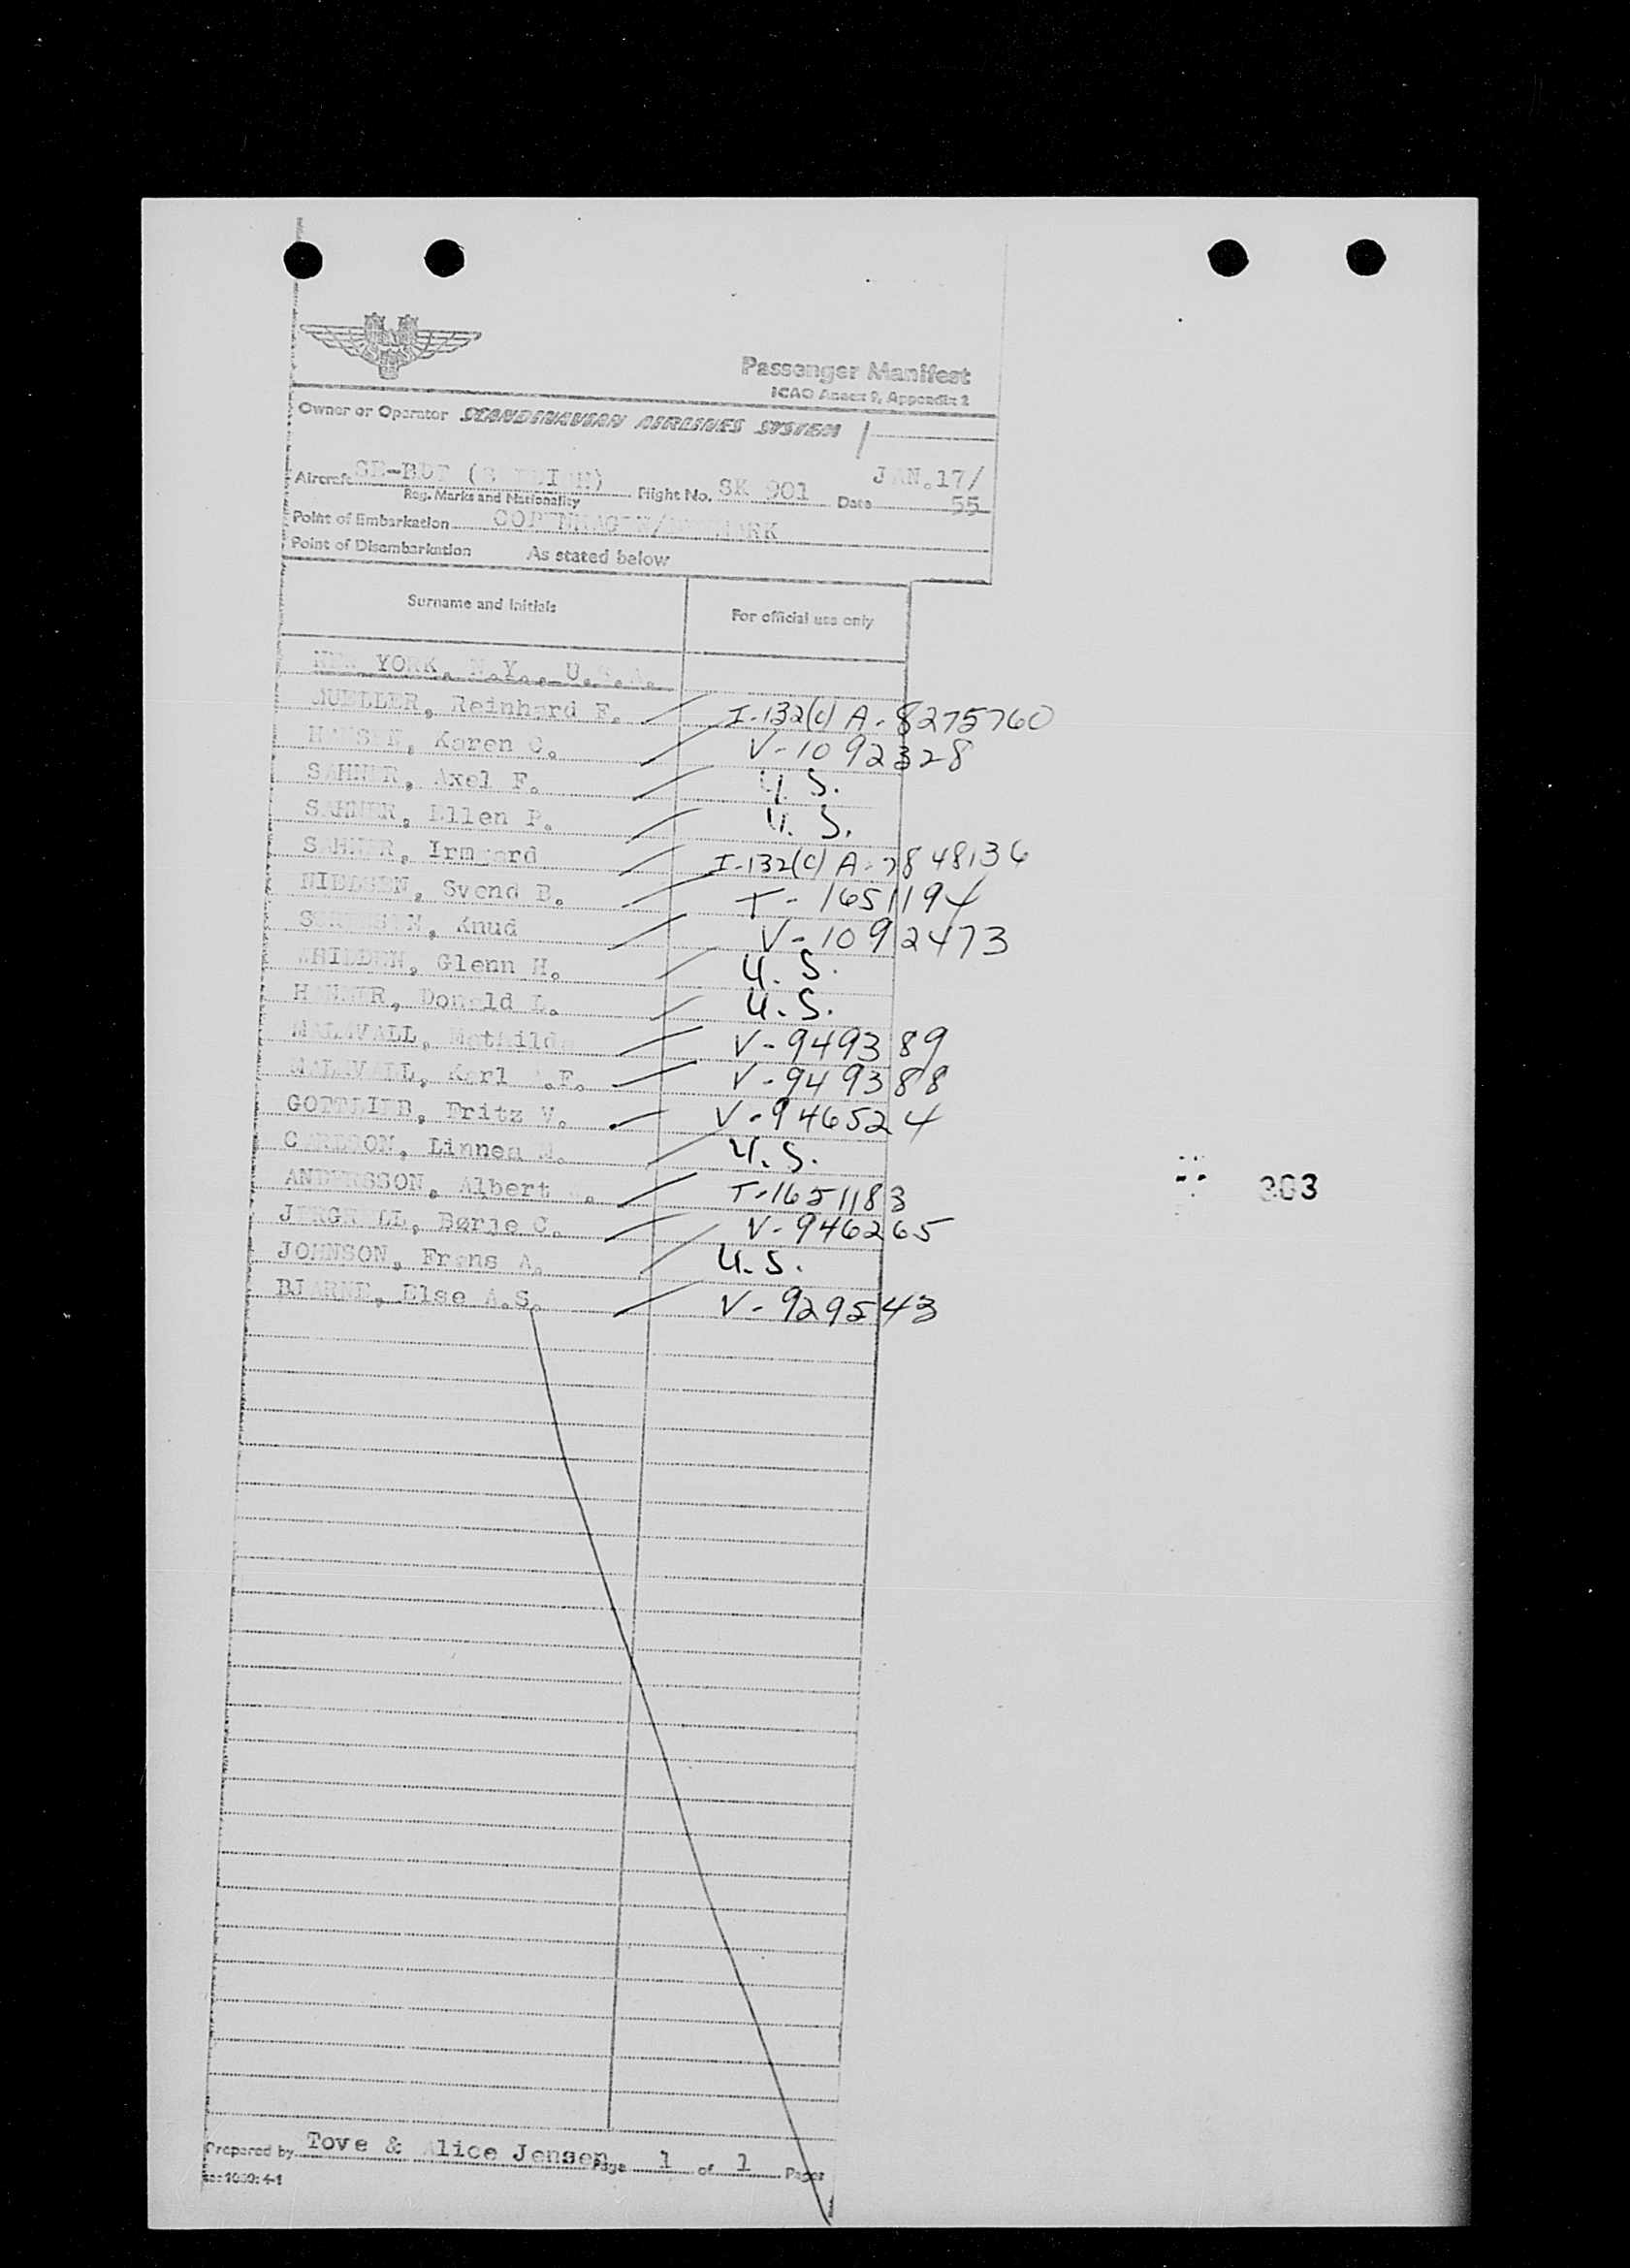 Passenger Manifest
ICAO Annex 9, Appendix 2
Owner or Operator SCANDINAVIAN AIRLINES SYSTEM
Aircraft Flight No. SK 901 Date JAN.17/55
Reg. Marks and Nationality
Point of Embarkation COPENHAGEN/DENMARK
Point of Disembarkation As stated below
Surname and Initials For official use only
NEW YORK, N.Y., U.S.A.
MUELLER, Reinhard F. I-132(c) A-8275760
HANSEN, Karen C. V-1092328
SAHNER, Axel F. U.S.
SAHNER, Ellen P. U.S.
SAHNER, Irmgard I-132(c) A-7848136
NIELSEN, Svend B. T-1651194
Knud V-1092473
WHILDEN, Glenn H. U.S.
Donald L. U.S.
Mathilde V-949389
Karl V-949388
GOTTLIEB, Fritz V. V-946524
CARLSON, Linnea U.S.
ANDERSSON, Albert T-1651183
Børje C. V-946265
JOHNSON, Frans A. U.S.
BJARNE, Else A.S. V-929543
303
Prepared by Tove & Alice Jensen Page 1 of 1 Pages